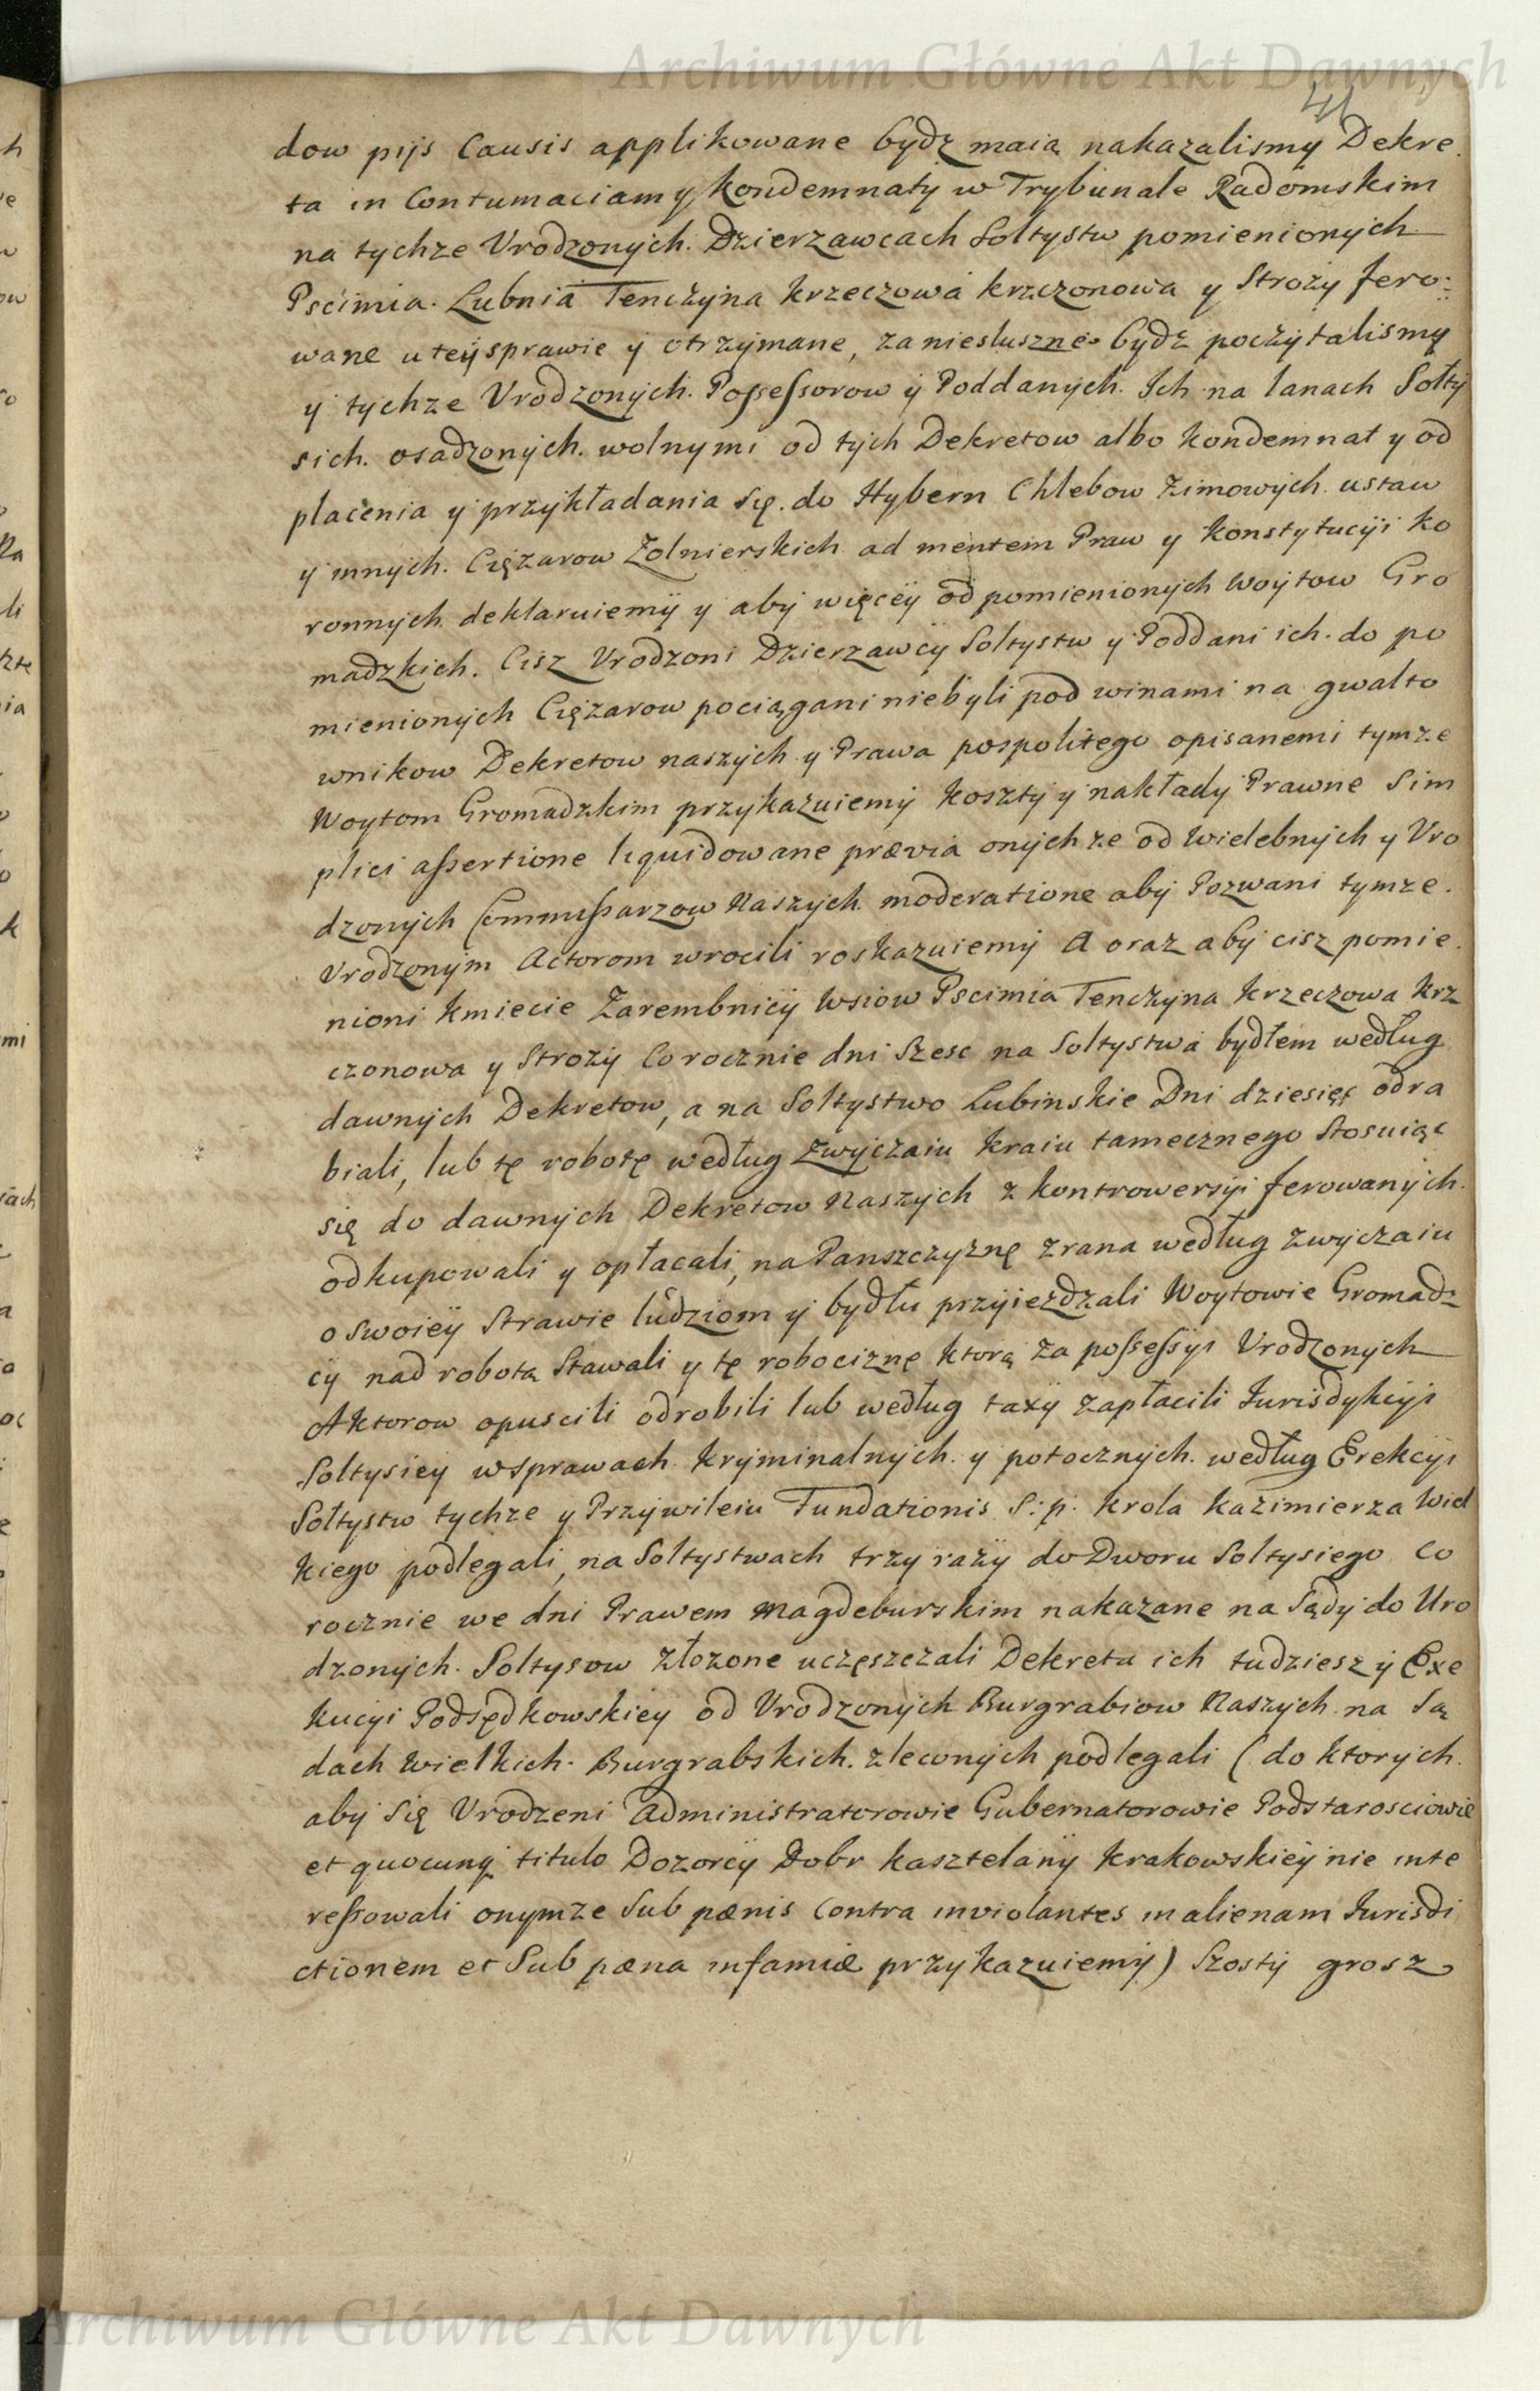 Archiwum Główne Akt Dawnych
41
dow pijs Causis applikowane bydz maią nakazalismy Dekre.
ta in Contumaciam y kondemnaty w Trybunale Radomskim
na tychze Vrodzonych. Dzierzawcach Soltystw pomienionych
Pscimia. Lubnia Tenczyna krzeczowa krzczonowa y Stroży fero:
wane uteÿ sprawie ÿ otrzymane, za niesluszne bydz poczytalismy
y tychze Vrodzonych. Possessorow ÿ Poddanych. Ich na lanach Sołty
sich. osadzonych. wolnymi od tych Dekretow albo kondemnat y od
placenia ÿ przykładania Się. do Hybern Chlebow Zimowych ustaw
y innych. Ciężarow Zolnierskich ad mentem Praw y konstytucÿi ko
ronnych deklaruiemÿ y abÿ więceÿ od pomienionych woytow Gro
madzkich. Cisz Vrodzoni Dzierzawcÿ Soltystw y Poddani ich. do po
mienionych Ciężarow pociągani niebyli pod winami na gwalto
wnikow Dekretow naszych y Prawa pospolitego opisanemi tymze
Woytom Gromadzkim przykazuiemÿ koszty y nakłady Prawne Sim
plici assertione liquidowane prævia onychze od Wielebnych y Vro
dzonych Commissarzow Naszych. moderatione abÿ Pozwani tymze.
Vrodzonÿm Actorom wrocili roskazuiemÿ A oraz abÿ cisz pomie.
nioni kmiecie Zarembnicÿ wsiow Pscimia Tenczyna krzeczowa krz
czonowa y Strozÿ Corocznie dni Szesc na Soltystwa bydłem według
dawnych Dekretow, a na Soltystwo Lubinskie Dni dziesięć odra
biali, lub tę robotę według zwyczaiu kraiu tamecznego Stosuiąc
się do dawnych Dekretow Naszych z kontrowersÿi ferowanych.
odkupowali y opłacali, na Panszczyznę zrana według zwyczaiu
o swoieÿ Strawie ludziom ÿ bydłu przÿiezdzali Woytowie Gromadz
cÿ nad robotą Stawali y tę robociznę ktorą za possessyi Vrodzonych
Aktorow opuscili odrobili lub według taxÿ zapłacili Jurisdykcÿi
Soltysieÿ w sprawach kryminalnych. y potocznych. według Erekcÿi
Sołtystw tychze y Przÿwileiu Fundationis S: p. krola kazimierza Wiel
kiego podlegali, na Soltystwach trzy razÿ do Dworu Soltysiego co
rocznie we dni Prawem Magdeburskim nakazane na Sądÿ do Uro
dzonych. Soltysow złozone uczęszczali Dekreta ich tudziesz ÿ Exe
kucyi Podsędkowskiey od Vrodzonych Burgrabiow Naszych na Są
dach Wielkich. Burgrabskich. zleconych podlegali ( do ktorych.
abÿ Się Vrodzeni Administratorowie Gubernatorowie Podstarosciowie
et quocunq titulo Dozorcÿ Dobr kasztelanÿ krakowskieÿ nie inte
ressowali onymze Sub pœnis contra inviolantes in alienam Jurisdi
ctionem et Sub pœna infamiæ przykazuiemÿ) Szostÿ grosz
Archiwum Główne Akt Dawnych